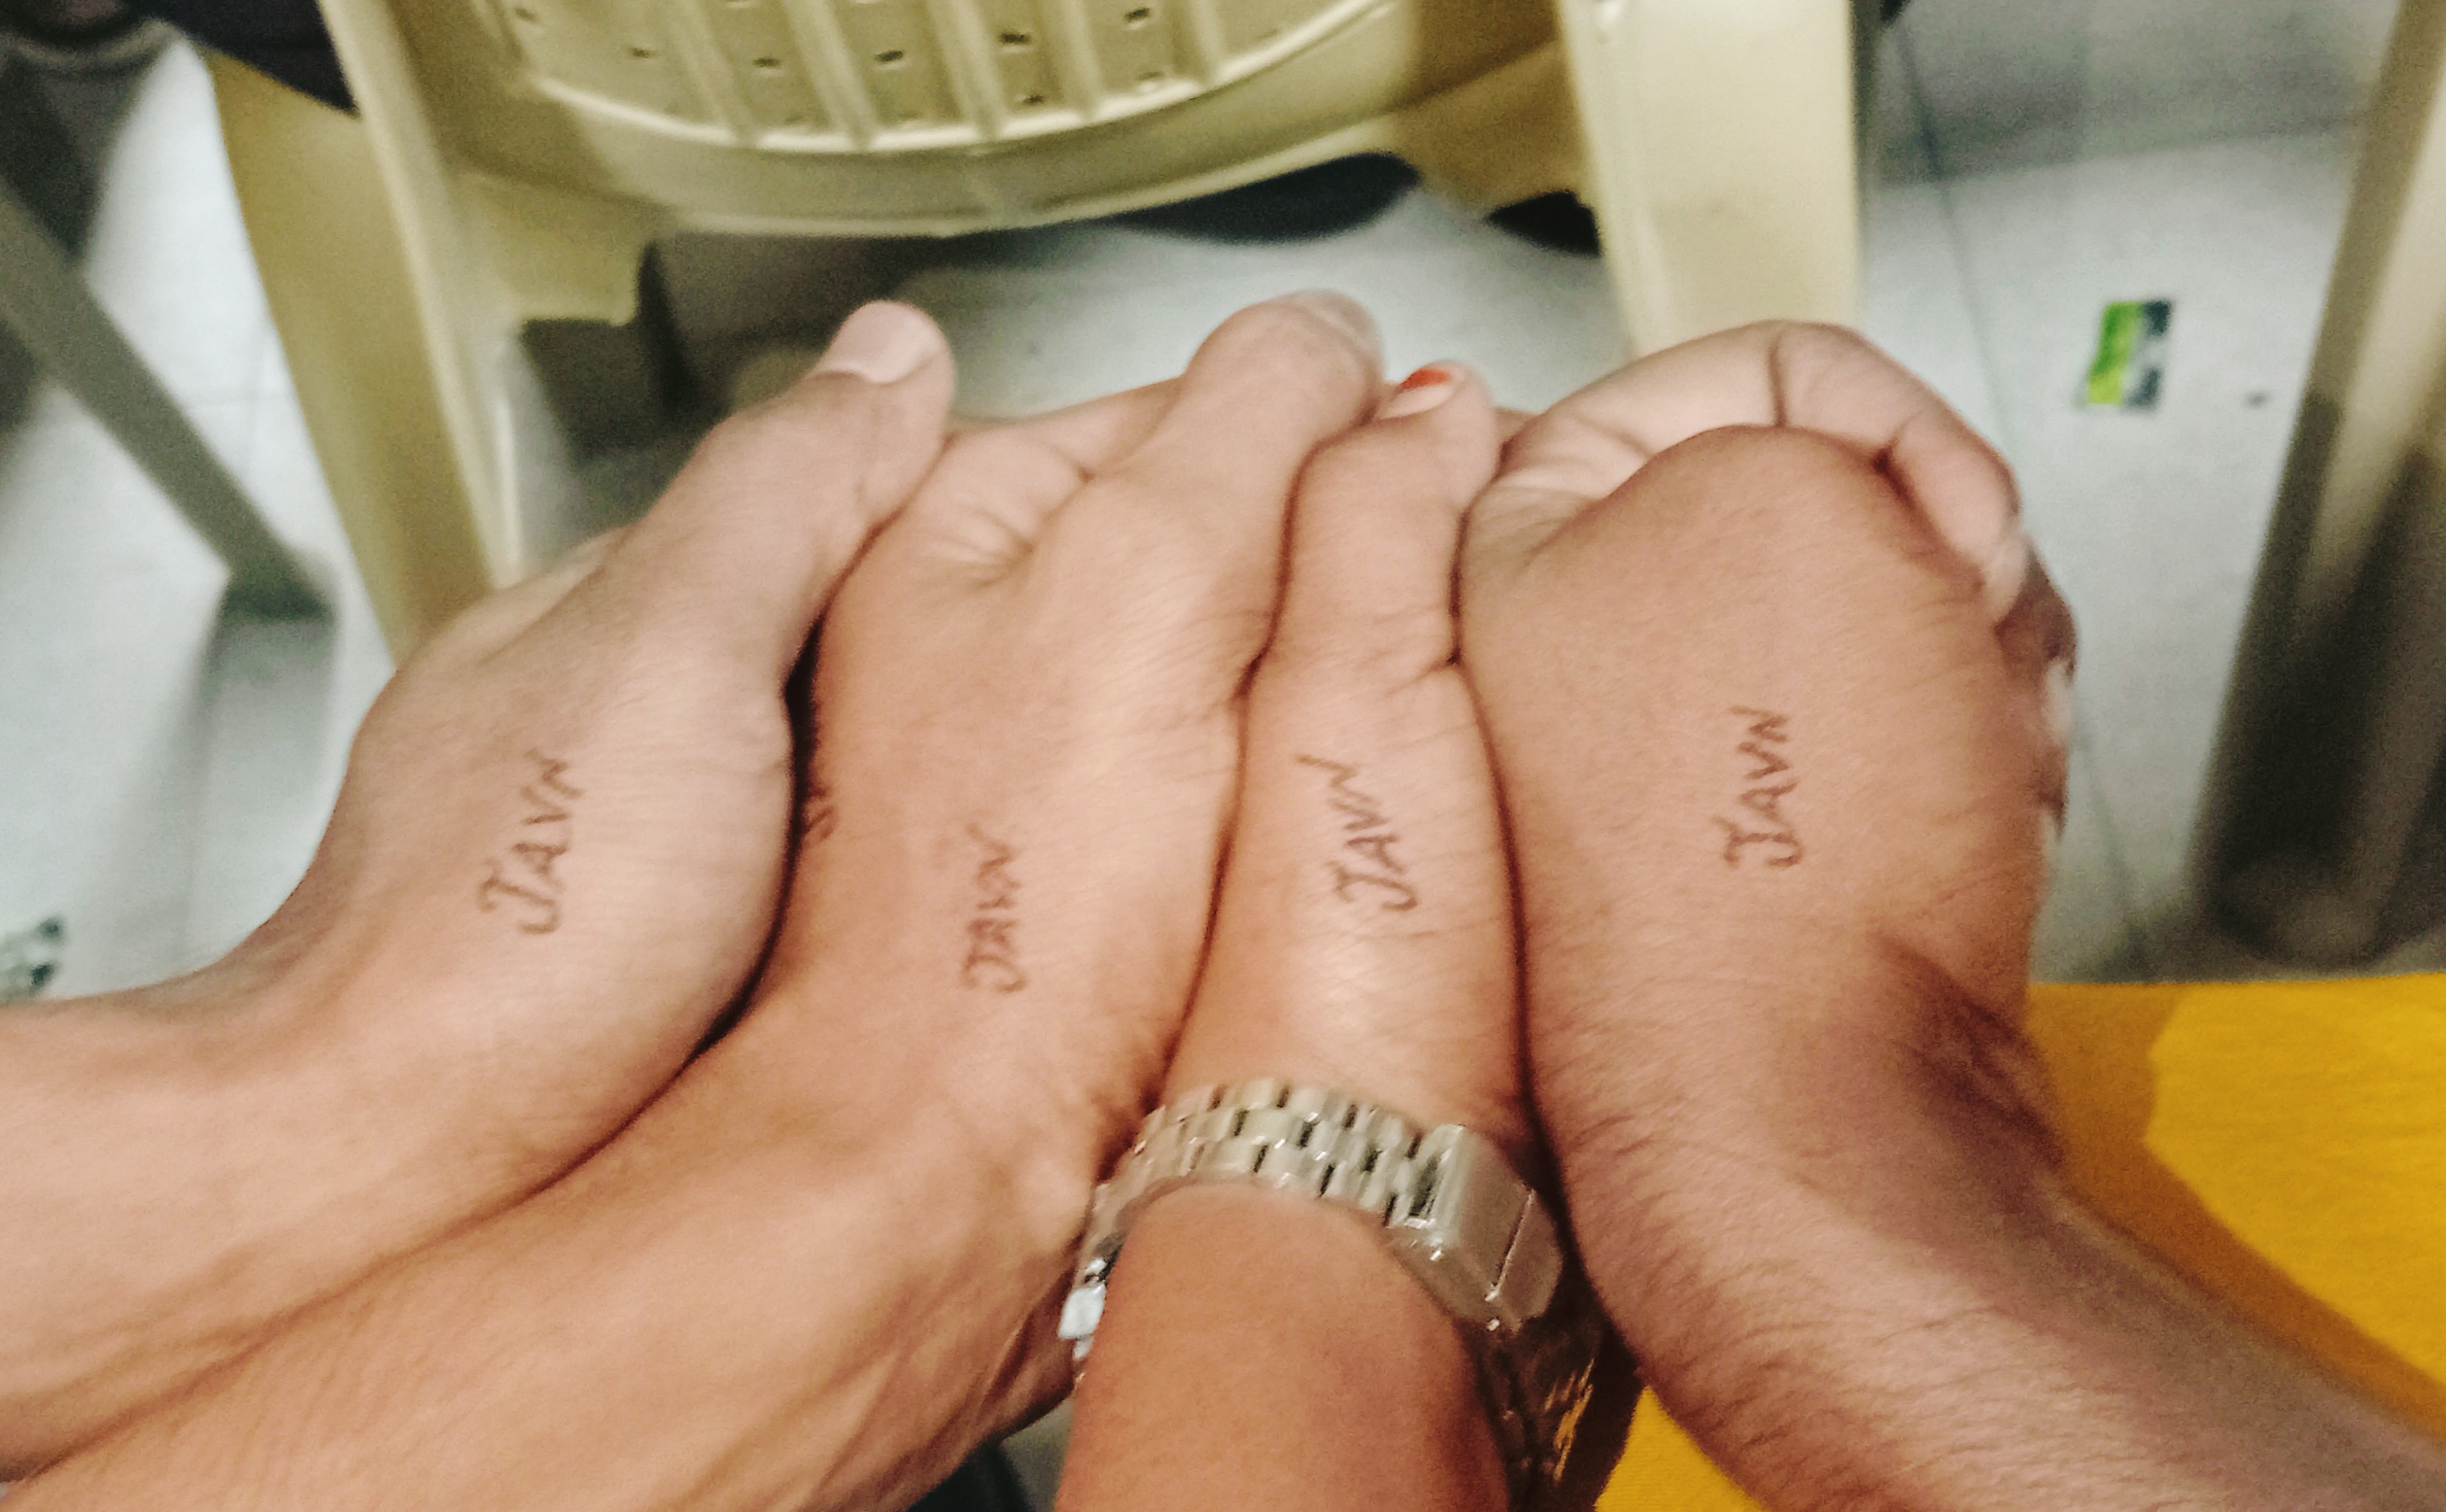 JAVN
JAVN
JAVN
JAVN